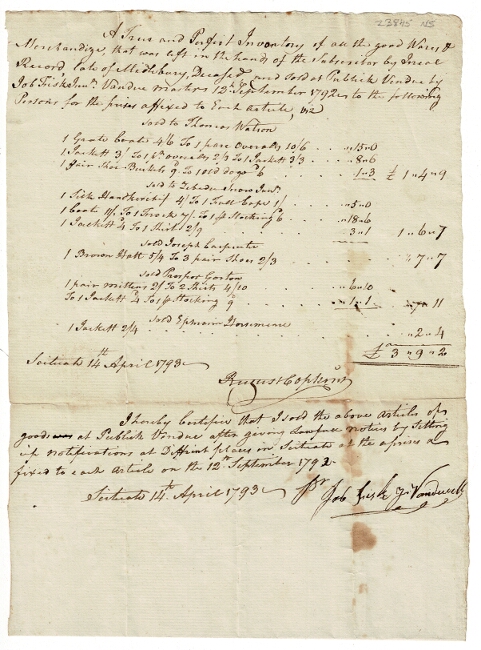 23845 NS
A True and Perfect Inventory of all the good Wares &
Merchandize, that was left in the hands of the Subscriber by
Record Late of Midlebury, Deceased, and sold at Publick Vendue by
Job Fisk Jun.r Vendue master 12th September 1792 to the following
Persons for the prises affixed to Each Article, viz
Sold to Thomas Watson
1 Grate Coate 4/6 To 1 pare Overalls 10/6 . . . " 15 " 0
1 Jackett 3/ To 1 pr overalls 2/3 To 1 Jackett 3/3 . . . " 8 " 6
1 pair Shoe Buckels 9d To 1 old 6 . . . 1 " 3 £ 1 " 4 " 9
Sold to Zebedee Snow Junr
1 Silk Handkerchif 4/ To 1 Cape 1/ . . " 5 " 0
1 Coate 11/ To 1 Frock 7/ To 1 pr Stocking 6 . . " 18 " 6
1 Jackett 4d To 1 Shirt 2/9 . . . 3 " 1 1 " 6 " 7
Sold Joseph Carpenter
1 Brown Hatt 5/4 To 3 pair Shoes 2/3 . . . " 7 " 7
Sold Prosper Gorton
1 pair mittens 2/ To 2 Shirts 4/10 . . . " 6 " 10
To 1 Jackett 4 To 1 pr Stocking 9 . . . " 1 " 1 " 7 " 11
Sold Ephraim
1 Jackett 2/4 . . . " 2 " 4
£ 3 " 9 " 2
Scituate 14th April 1793
Rufus Hopkins
I hereby Certifie that I sold the above Article of
good at Publick Vendue after giving Lawfull notis by Setting
up notifications at Diffrint places in Scituate at the aprise a
fixed to each Article on the 12th September 1792
Scituate 14th April 1793 pr Job Fisk Jr